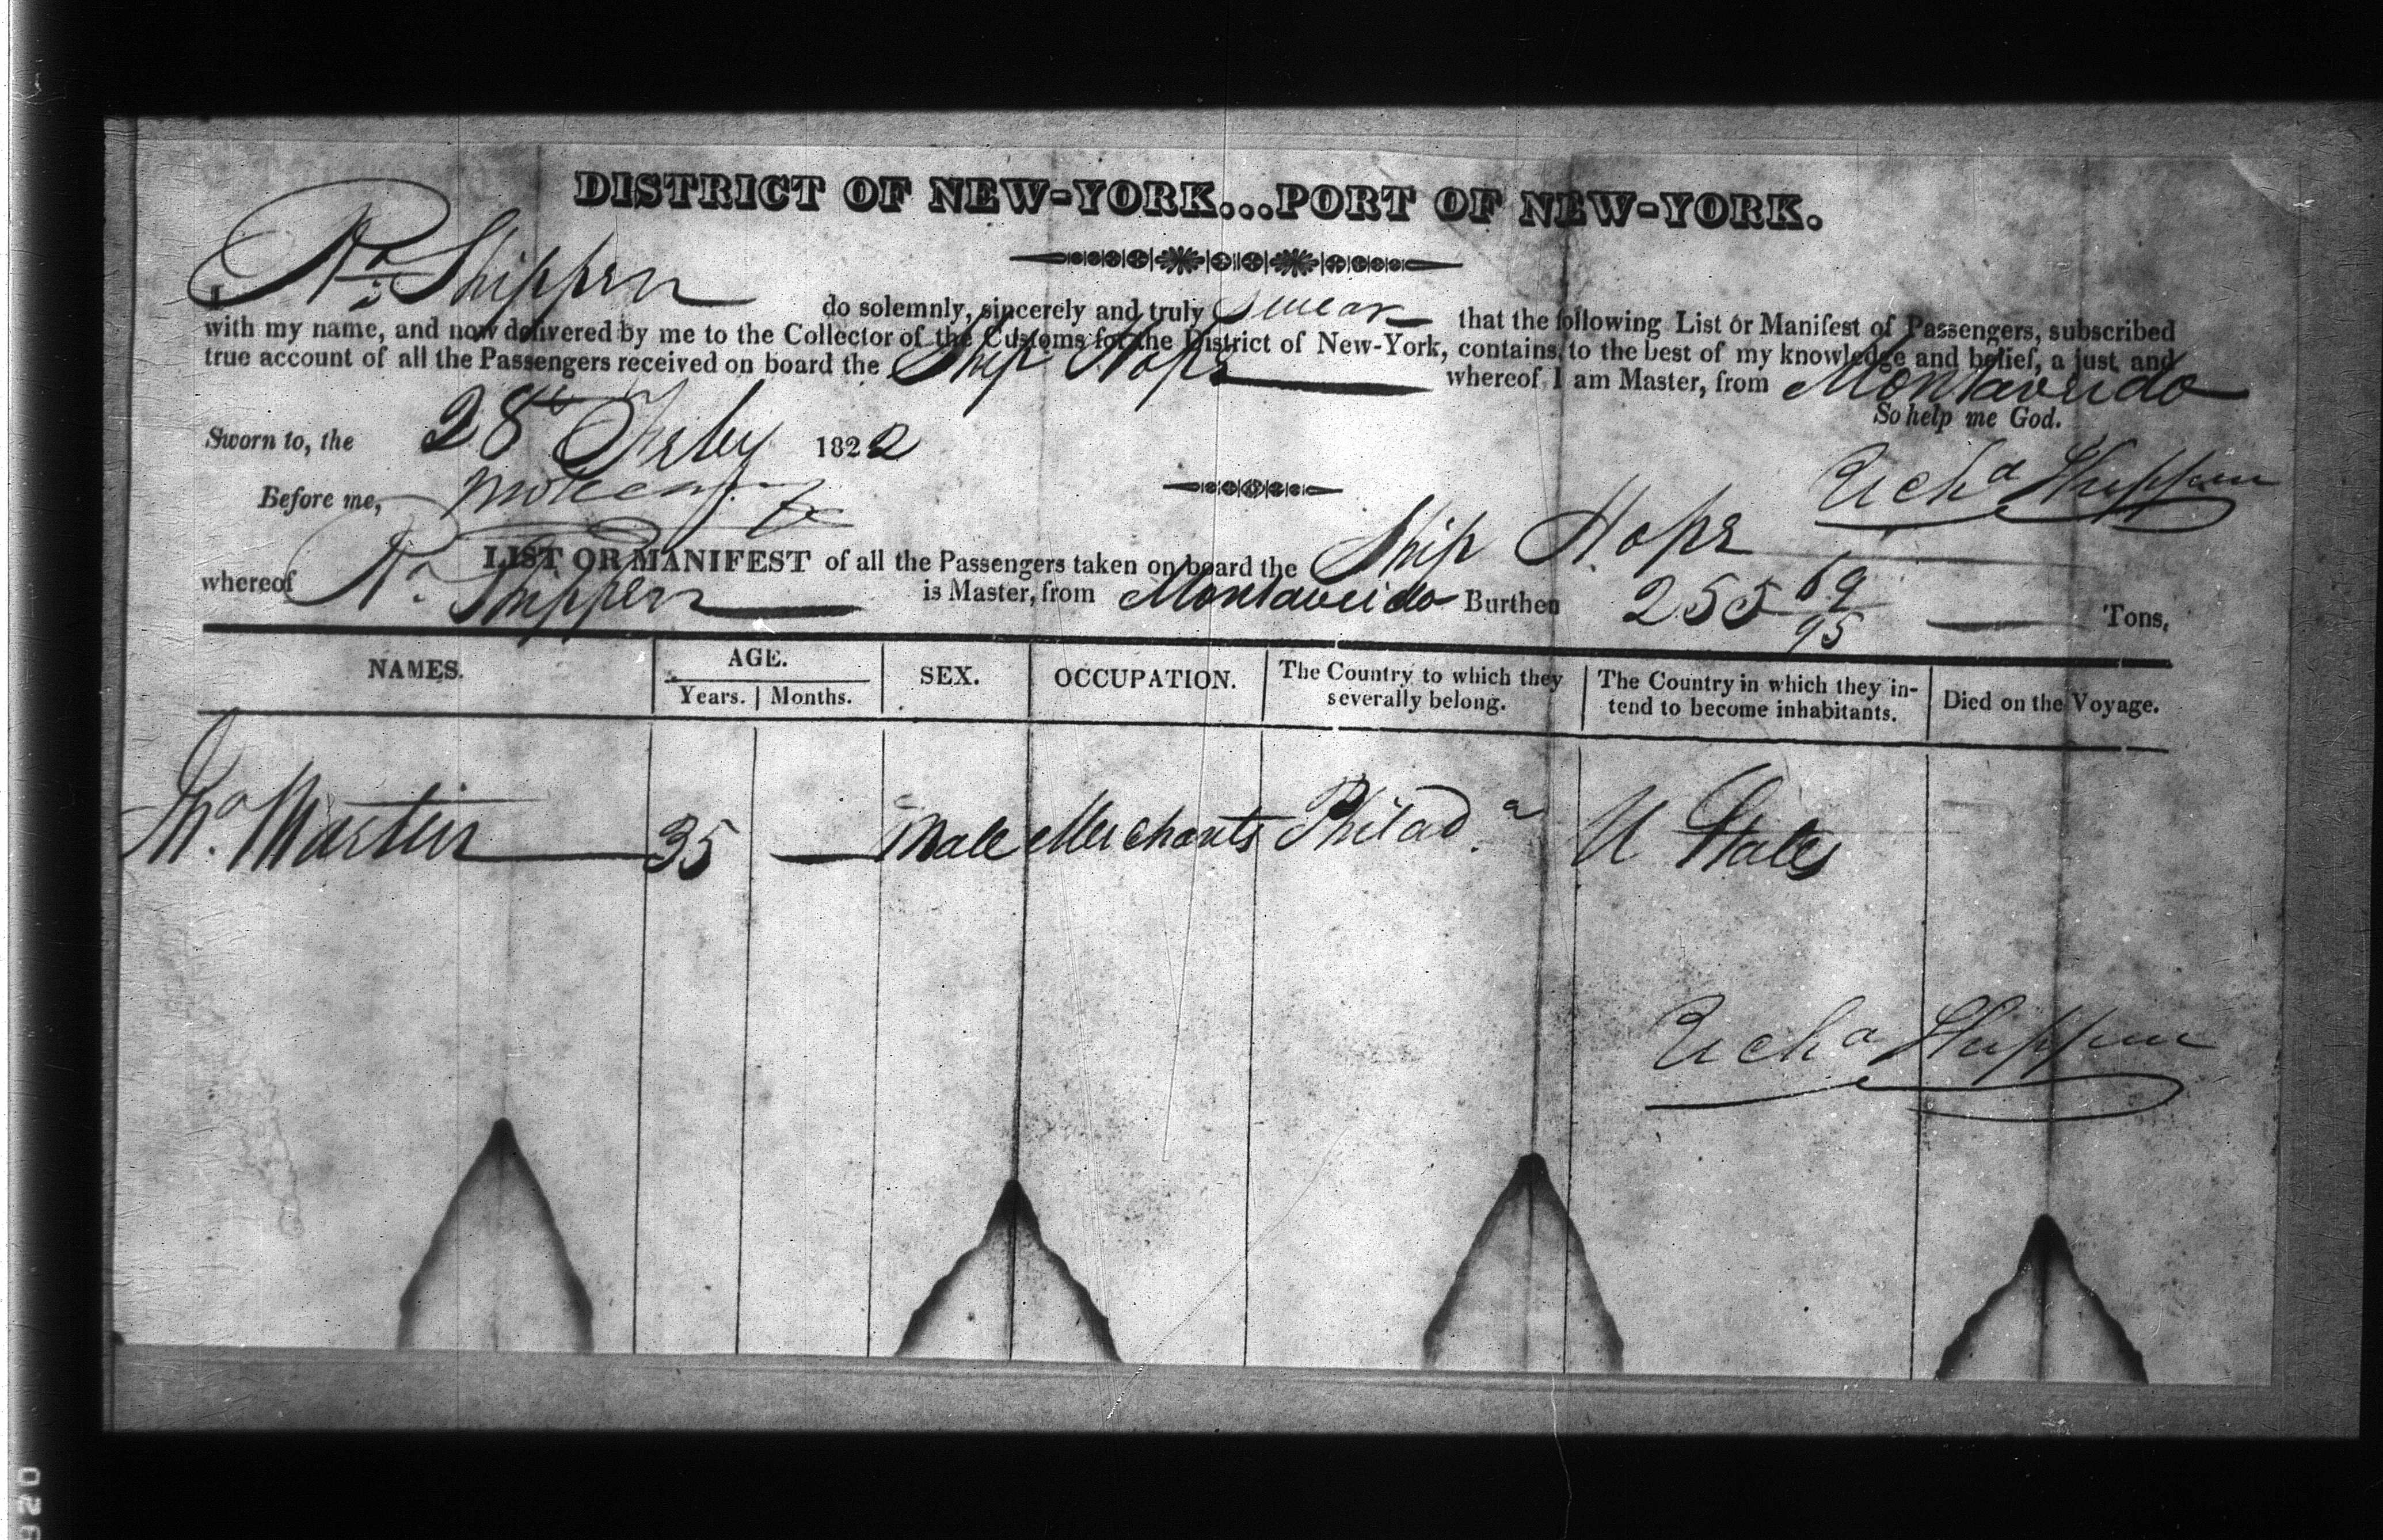 DISTRICT OF NEW-YORK...PORT OF NEW-YORK.
I Rd. Shippen do solemnly, sincerely and truly Swear that the following List or Manifest of Passengers, subscribed
with my name, and now delivered by me to the Collector of the Customs for the District of New-York, contains, to the best of my knowledge and belief, a just and
true account of all the Passengers received on board the Ship Hope whereof I am Master, from Montaveido
So help me God.
Sworn to, the 28th Feby 1822
Richd Shippen
Before me,
LIST OR MANIFEST of all the Passengers taken on board the Ship Hope
whereof Rd. Shippen is Master, from Montaveido Burthen 255 69/95 Tons,
NAMES. AGE. SEX. OCCUPATION. The Country to which they severally belong. The Country in which they in-tend to become inhabitants. Died on the Voyage.
Years. Months.
Martin 35 — Male Merchants Philada U States
Richd Shippen
820